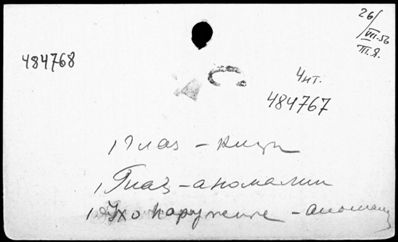 26/VII-56
П.Я.
484768
Чит.
484767
1) Глаз -
1 Глаз - аномалии
1 Ухо наружное - аномалии